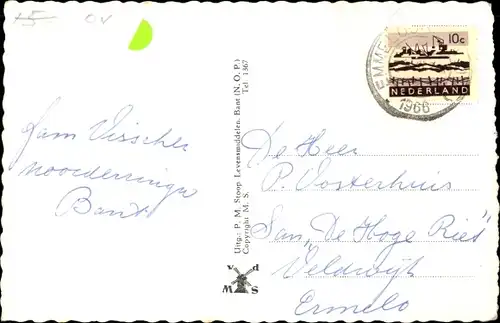 +5 OV
10c
NEDERLAND
EMME
1966
Fam Visscher
Noorderringw
Bant
Uitg.: P. M. Stoop Levensmiddelen, Bant (N.O.P.)
Copyright M. S. Tel. 1367
v d
W S
M
De Heer
P. Oosterhuis
San, "De Hoge Riet"
Veldwijk
Ermelo